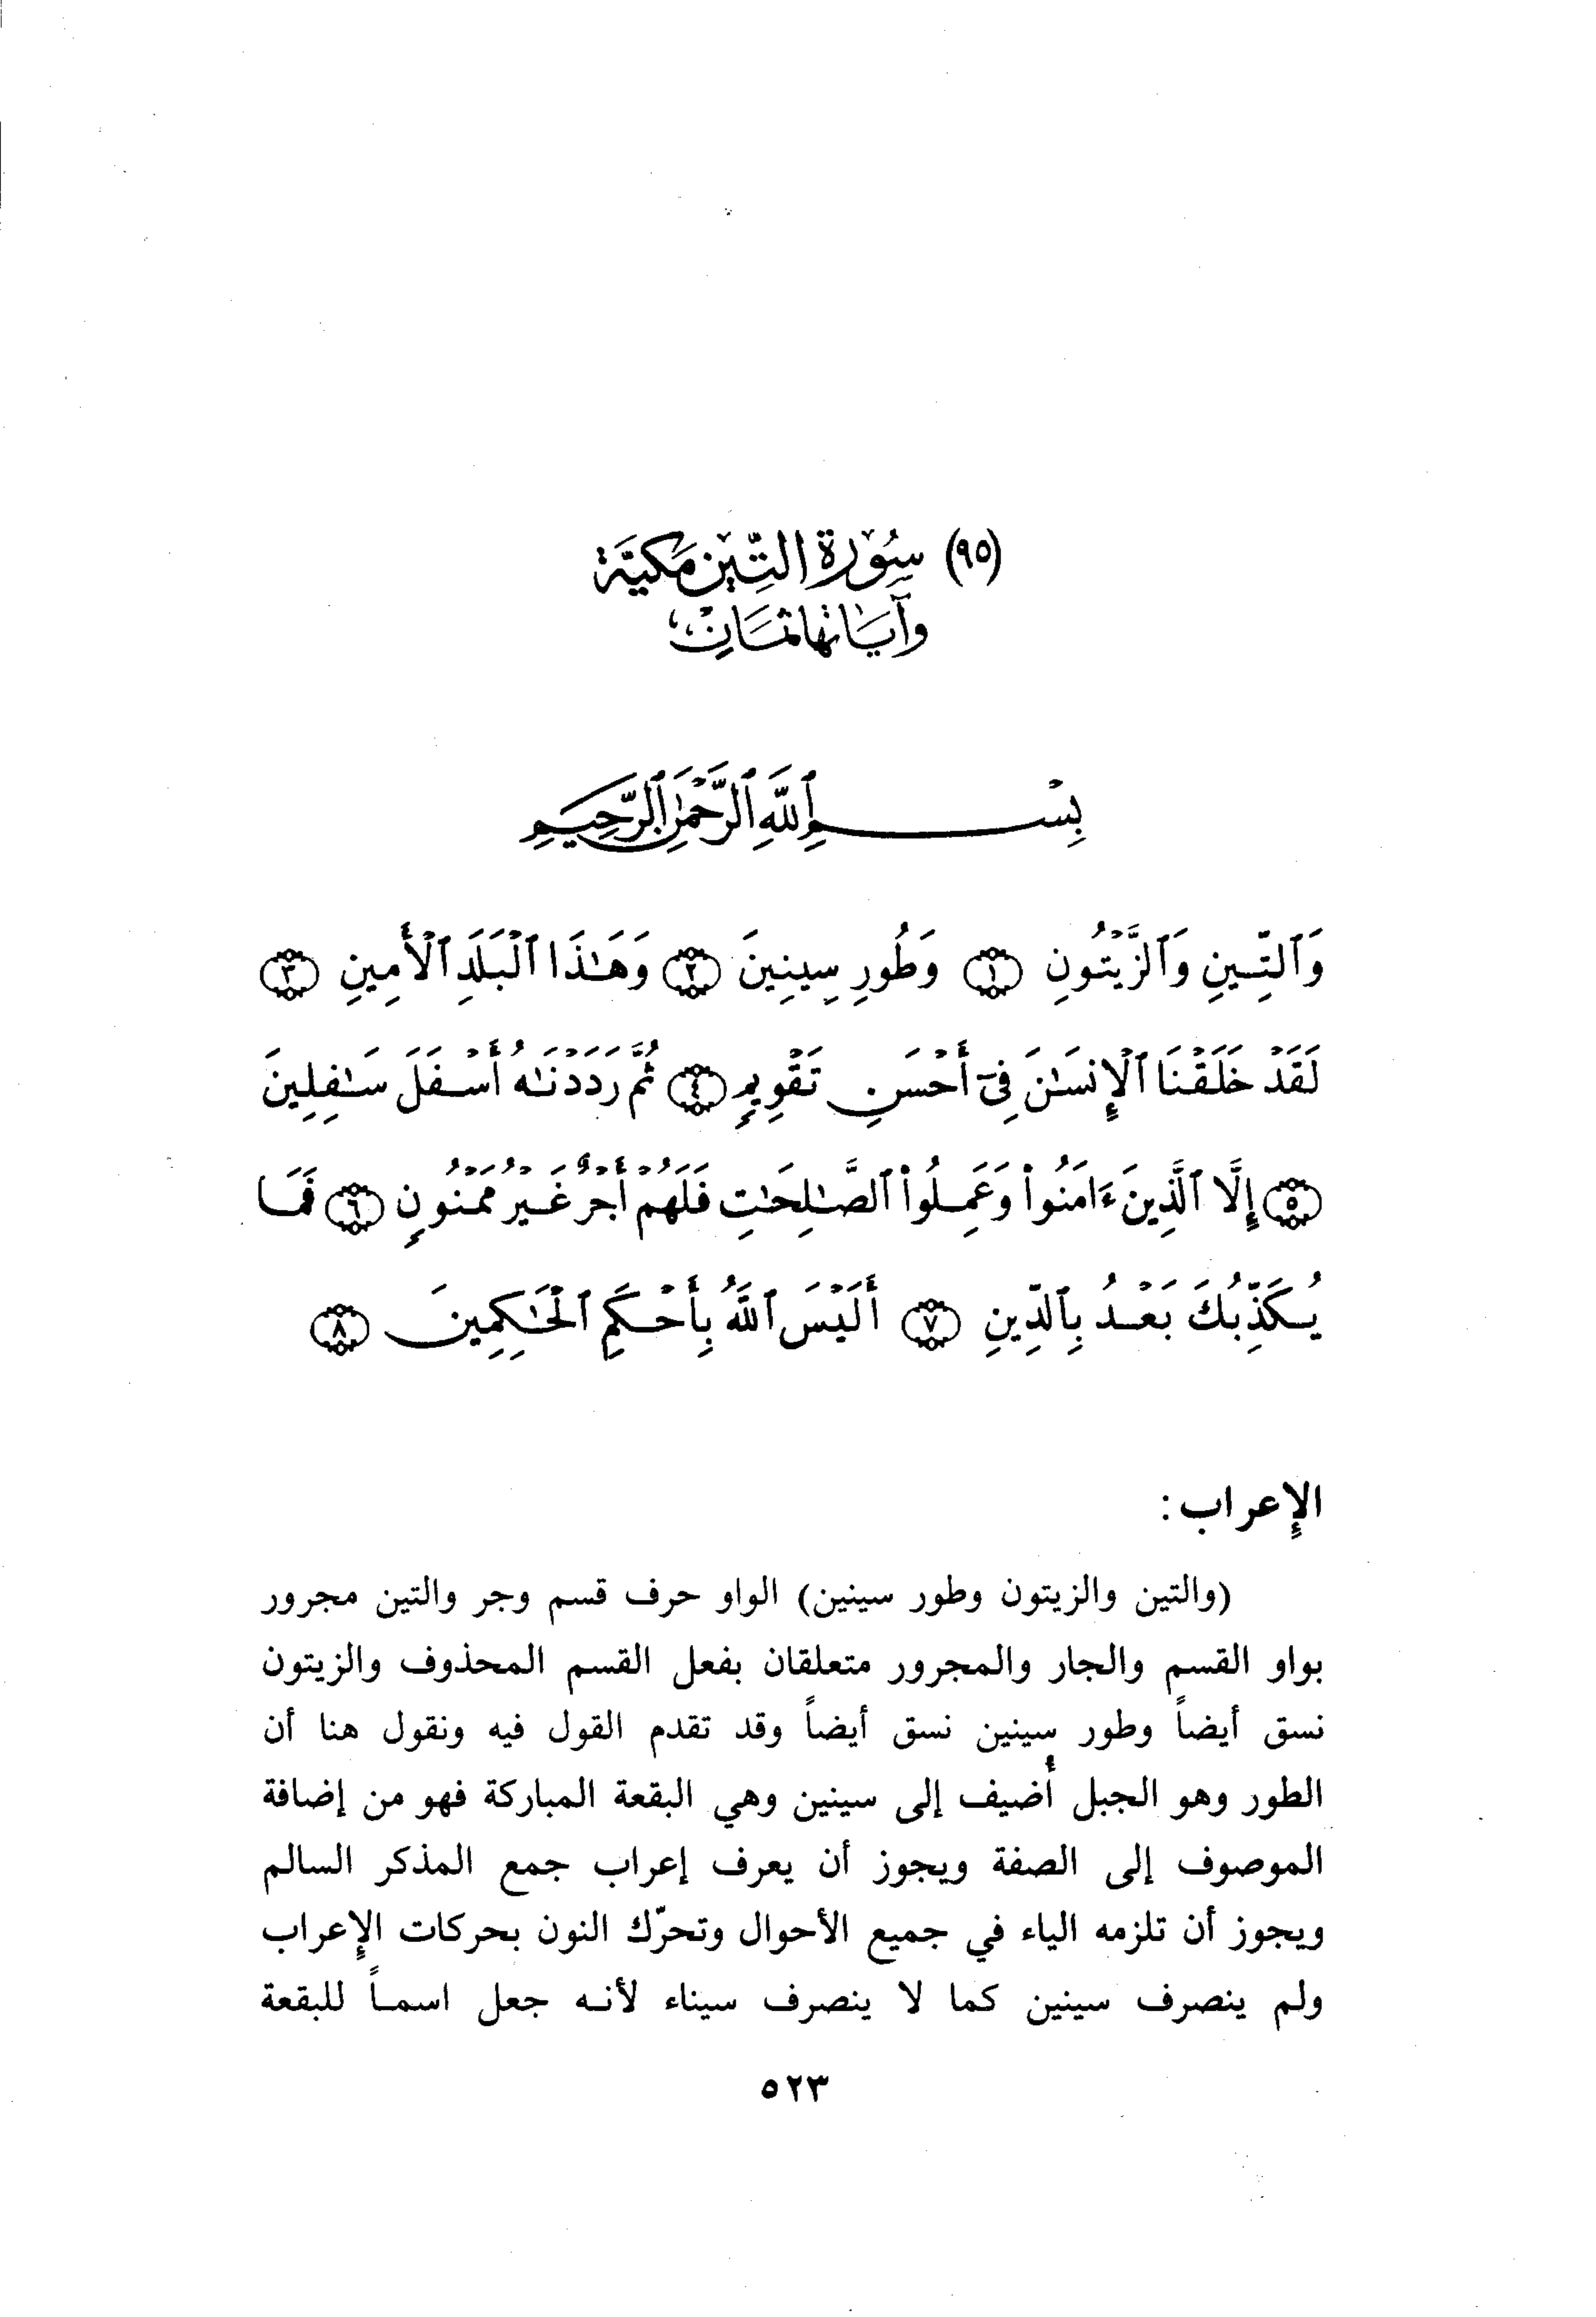 (٩٥) سُورة التِّين مَكيَّة
وآيَاتها ثمَانٍ
بِسْمِ ٱللَّهِ ٱلرَّحْمَٰنِ ٱلرَّحِيمِ
وَٱلتِّينِ وَٱلزَّيْتُونِ ﴿١﴾ وَطُورِ سِينِينَ ﴿٢﴾ وَهَٰذَا ٱلْبَلَدِ ٱلْأَمِينِ ﴿٣﴾
لَقَدْ خَلَقْنَا ٱلْإِنسَٰنَ فِىٓ أَحْسَنِ تَقْوِيمٍ ﴿٤﴾ ثُمَّ رَدَدْنَٰهُ أَسْفَلَ سَٰفِلِينَ
﴿٥﴾ إِلَّا ٱلَّذِينَ ءَامَنُوا۟ وَعَمِلُوا۟ ٱلصَّٰلِحَٰتِ فَلَهُمْ أَجْرٌ غَيْرُ مَمْنُونٍ ﴿٦﴾ فَمَا
يُكَذِّبُكَ بَعْدُ بِٱلدِّينِ ﴿٧﴾ أَلَيْسَ ٱللَّهُ بِأَحْكَمِ ٱلْحَٰكِمِينَ ﴿٨﴾
الإعراب :
(والتين والزيتون وطور سينين) الواو حرف قسم وجر والتين مجرور
بواو القسم والجار والمجرور متعلقان بفعل القسم المحذوف والزيتون
نسق أيضاً وطور سينين نسق أيضاً وقد تقدم القول فيه ونقول هنا أن
الطور وهو الجبل أُضيف إلى سينين وهي البقعة المباركة فهو من إضافة
الموصوف إلى الصفة ويجوز أن يعرف إعراب جمع المذكر السالم
ويجوز أن تلزمه الياء في جميع الأحوال وتحرّك النون بحركات الإعراب
ولم ينصرف سينين كما لا ينصرف سيناء لأنه جعل اسماً للبقعة
٥٢٣